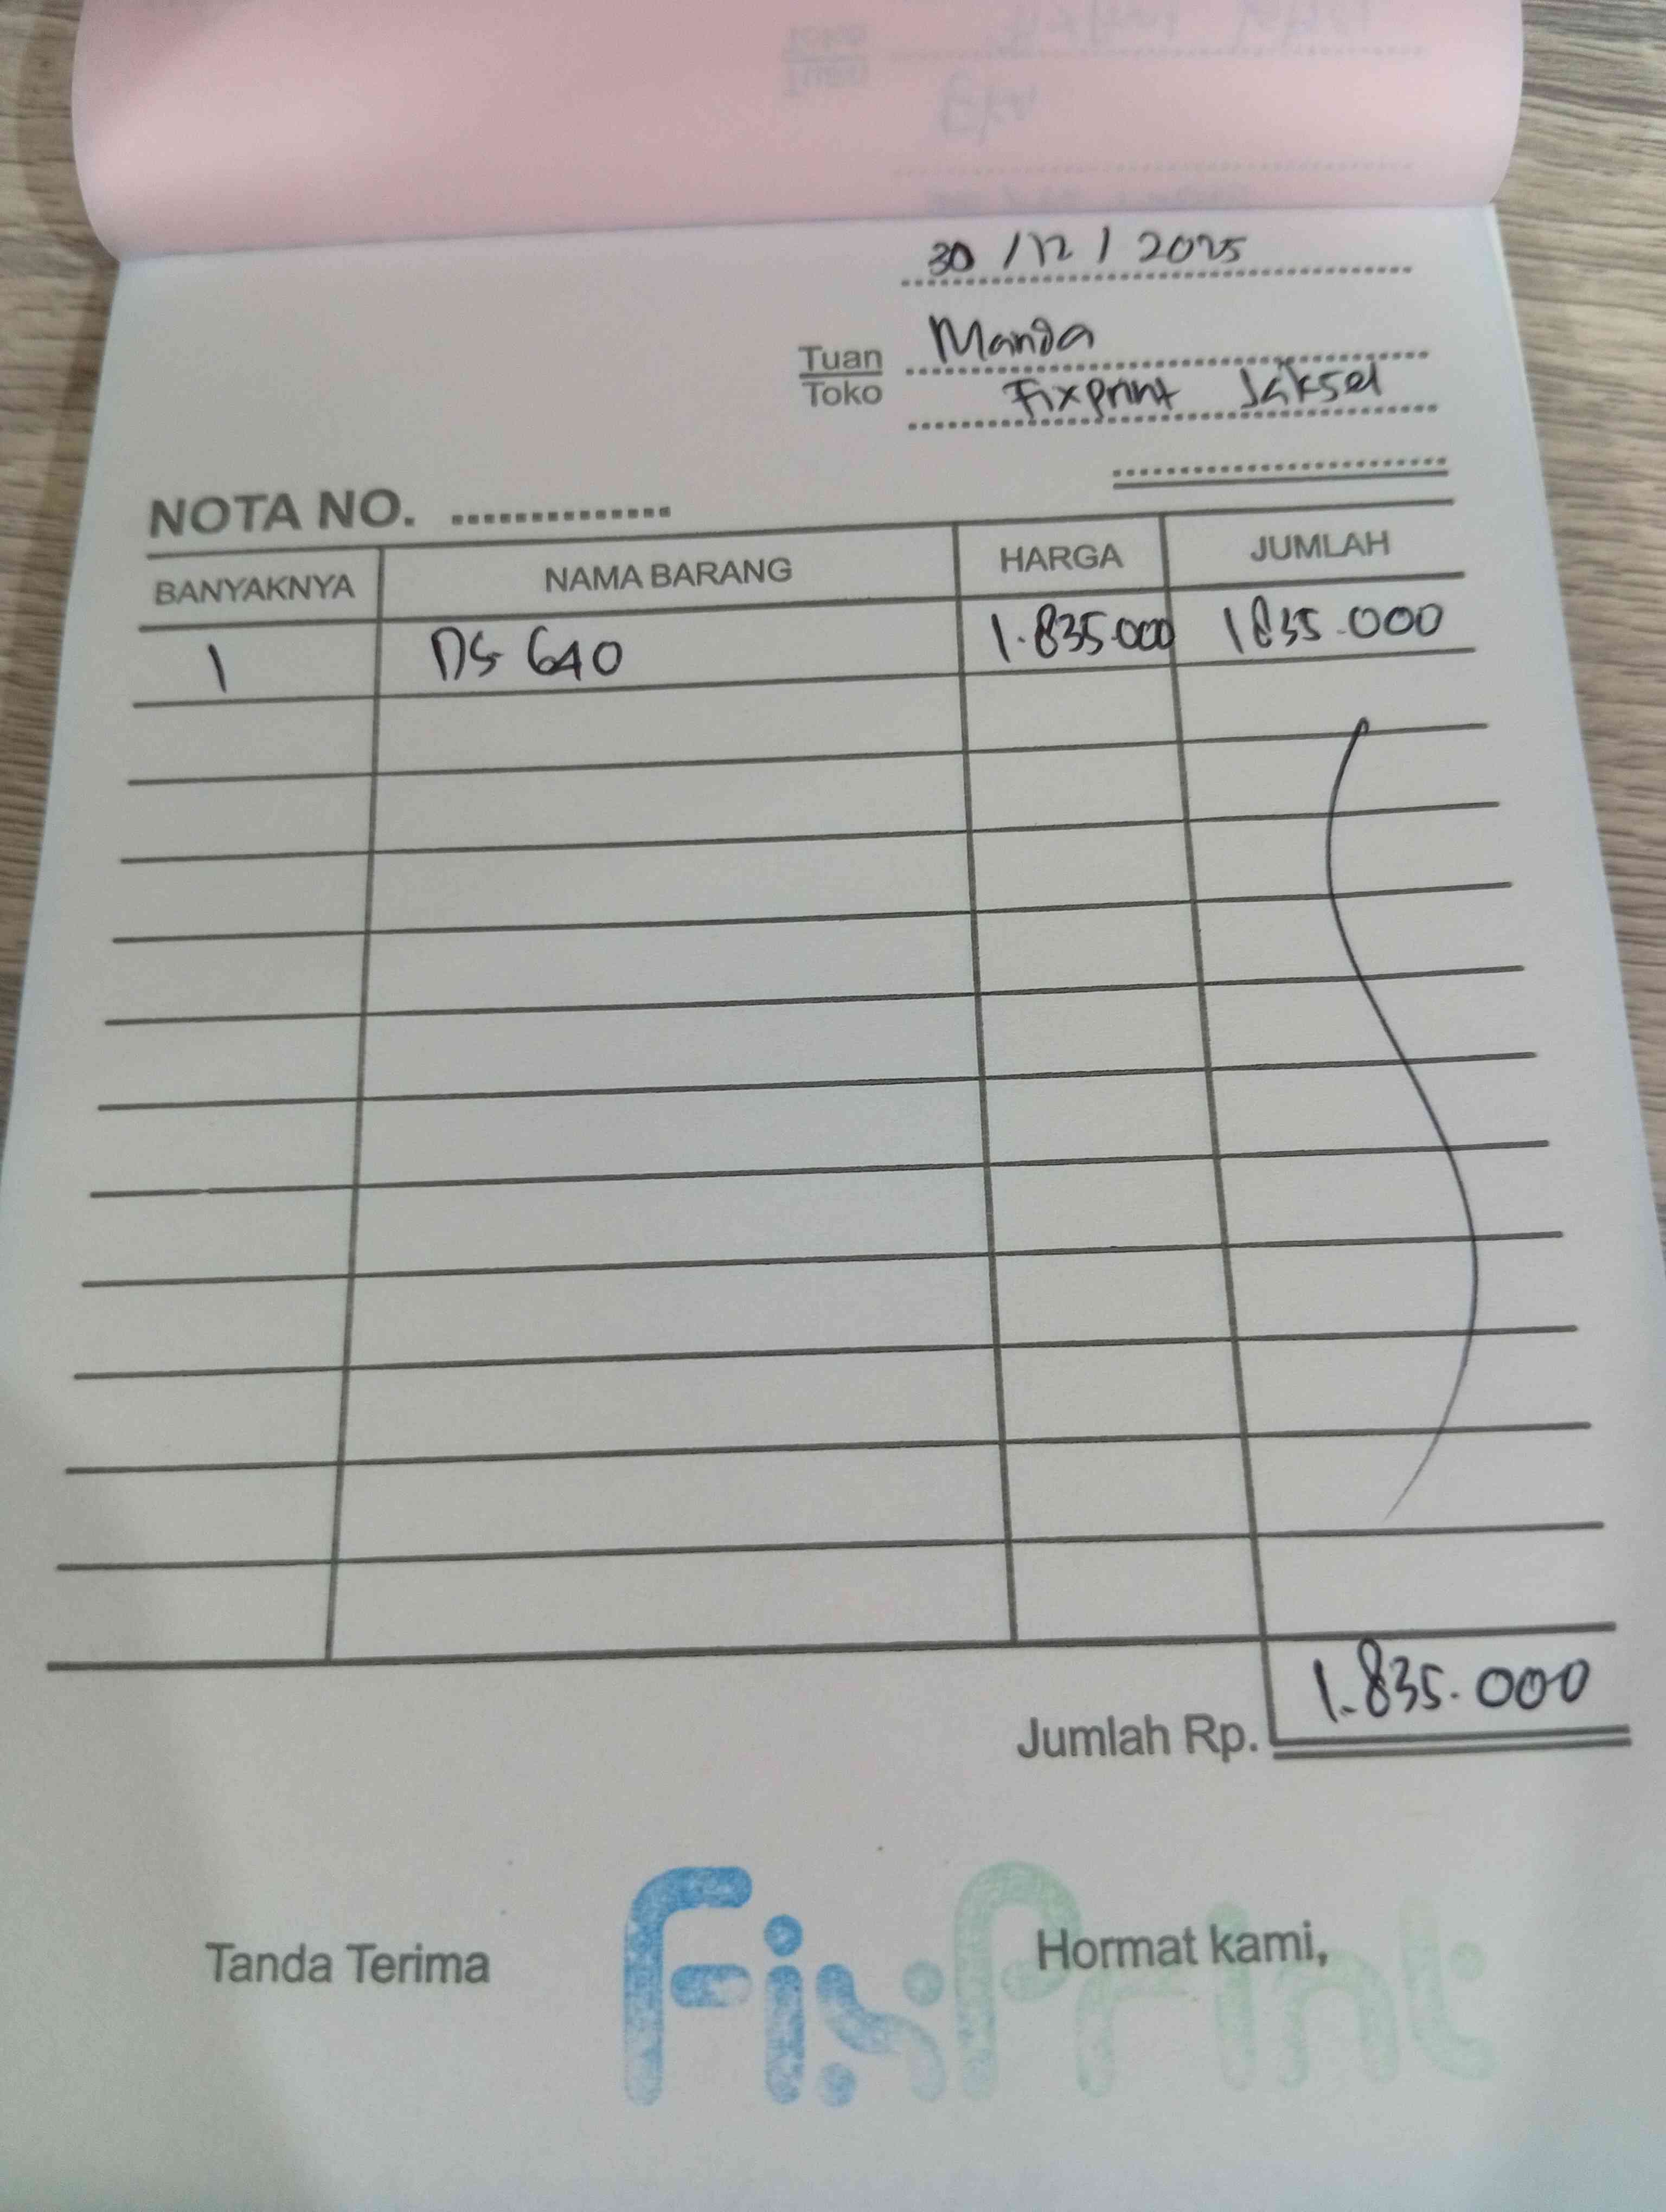 30 / 12 / 2025
Tuan Manda
Toko Fixprint Jaksel
NOTA NO. ...............
BANYAKNYA NAMA BARANG HARGA JUMLAH
1 DS 640 1.835.000 1835.000
Jumlah Rp. 1.835.000
Tanda Terima Hormat kami,
FixPrint